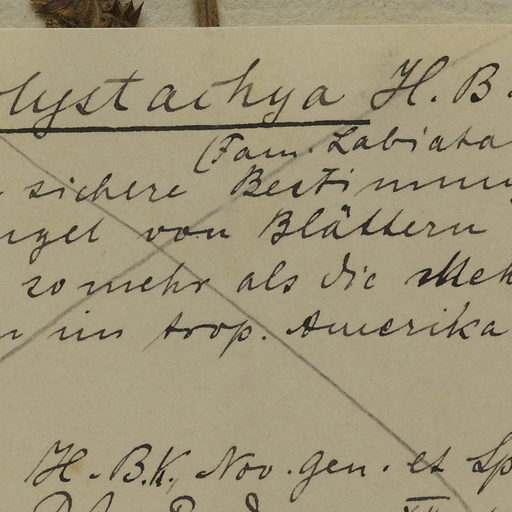 lystachya H. B.
(Fam. Labiata
sichere Bestimmung
ngel von Blättern
so mehr als die Meh
n im trop. Amerika
H. B. K., Nov. gen. et Sp